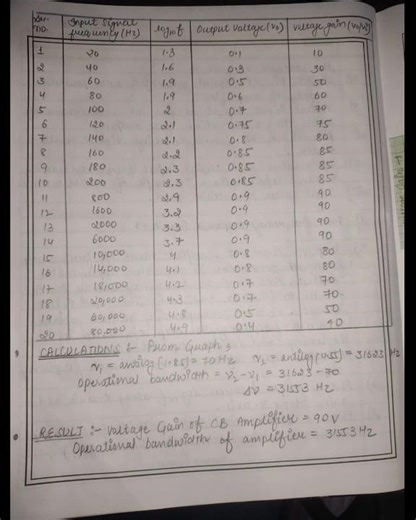 Sr. no. Input signal frequency (Hz) log₁₀f Output voltage (V₀) Voltage gain (V₀/Vᵢ)
1 20 1.3 0.1 10
2 40 1.6 0.3 30
3 60 1.9 0.5 50
4 80 1.9 0.6 60
5 100 2 0.7 70
6 120 2.1 0.75 75
7 140 2.1 0.8 80
8 160 2.2 0.85 85
9 180 2.3 0.85 85
10 200 2.3 0.85 85
11 800 2.9 0.9 90
12 1600 3.2 0.9 90
13 2000 3.3 0.9 90
14 6000 3.7 0.9 90
15 10,000 4 0.8 80
16 14,000 4.1 0.8 80
17 18,000 4.2 0.7 70
18 20,000 4.3 0.7 70
19 60,000 4.8 0.5 50
20 80,000 4.9 0.4 40
CALCULATIONS :- From Graph,
ν₁ = antilog (1.85) = 70 Hz ν₂ = antilog (4.55) = 31623 Hz
Operational bandwidth = ν₂ - ν₁ = 31623 - 70
Δν = 31553 Hz
RESULT :- Voltage Gain of CB Amplifier = 90V
Operational bandwidth of amplifier = 31553 Hz